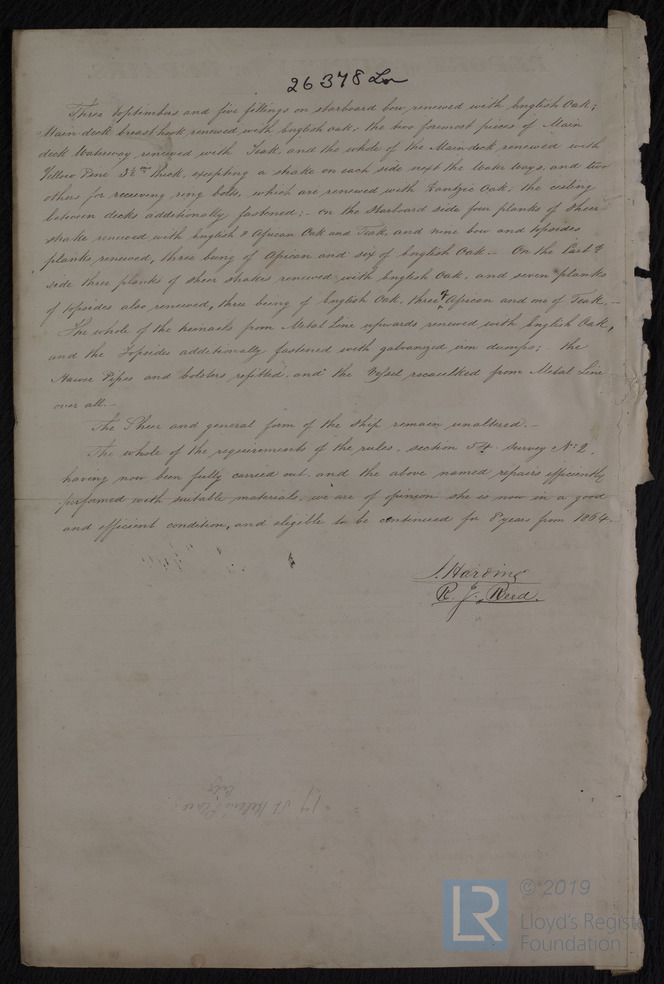 26378 Lon
Three Toptimbers and five fillings on starboard bow renewed with English Oak;
Main deck breasthook renewed with English oak; the two foremost pieces of Main
deck Waterway renewed with Teak, and the whole of the Maindeck renewed with
Yellow Pine 3½ ins thick, excepting a strake on each side next the water ways, and two
others for receiving ring bolts, which are renewed with Dantzic Oak; the ceiling
between decks additionally fastened; - on the Starboard side four planks of Sheer
strake renewed with English & African Oak and Teak, and nine bow and topsides
planks renewed, three being of African and six of English Oak. - On the Port
side three planks of sheer strakes renewed with English Oak, and seven planks
of topsides also renewed, three being of English Oak, three of African and one of Teak. -
The whole of the treenails from Metal Line upwards renewed with English Oak,
and the Topsides additionally fastened with galvanized iron dumps; the
Hawse Pipes and bolsters refitted, and the Vessel recaulked from Metal Line
over all. -
The Sheer and general form of the Ship remain unaltered. -
The whole of the requirements of the rules, section 54 Survey No 2,
having now been fully carried out, and the above named repairs efficiently
performed with suitable materials, we are of opinion she is now in a good
and efficient condition, and eligible to be continued for 8 years from 1864. -
J. Harding
R. J. Reed.
17 St Helens Place
City
LR
© 2019
Lloyd's Register
Foundation